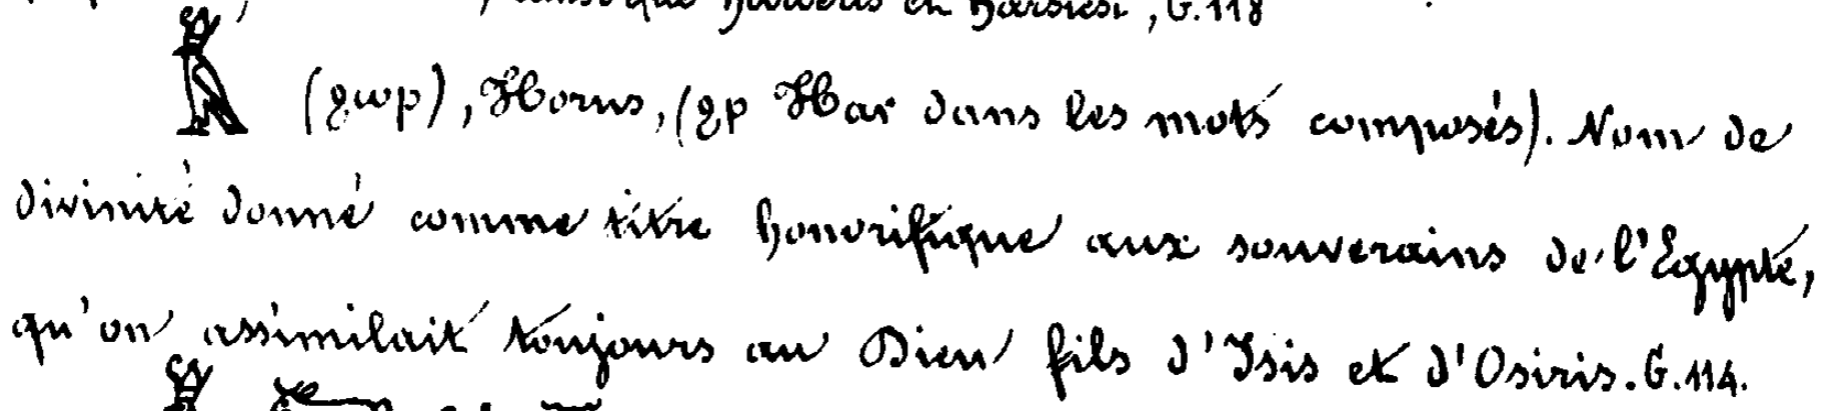 Haroëris et Harsiési, G.118
𓅃 (ϩⲱⲣ), Horus, (ϩⲣ Har dans les mots composés). Nom de
divinité donné comme titre honorifique aux souverains de l'Egypte,
qu'on assimilait toujours au Dieu fils d'Isis et d'Osiris. G. 114.